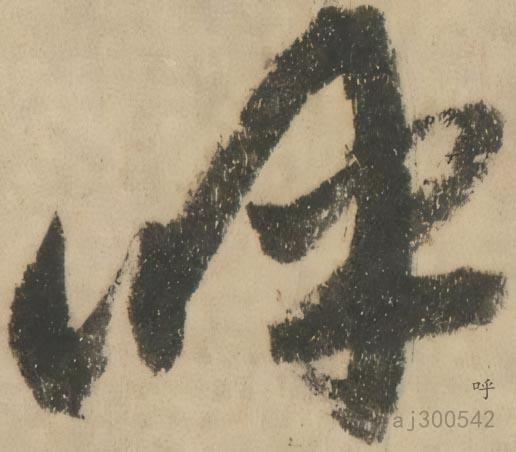 呼
呼
aj300542